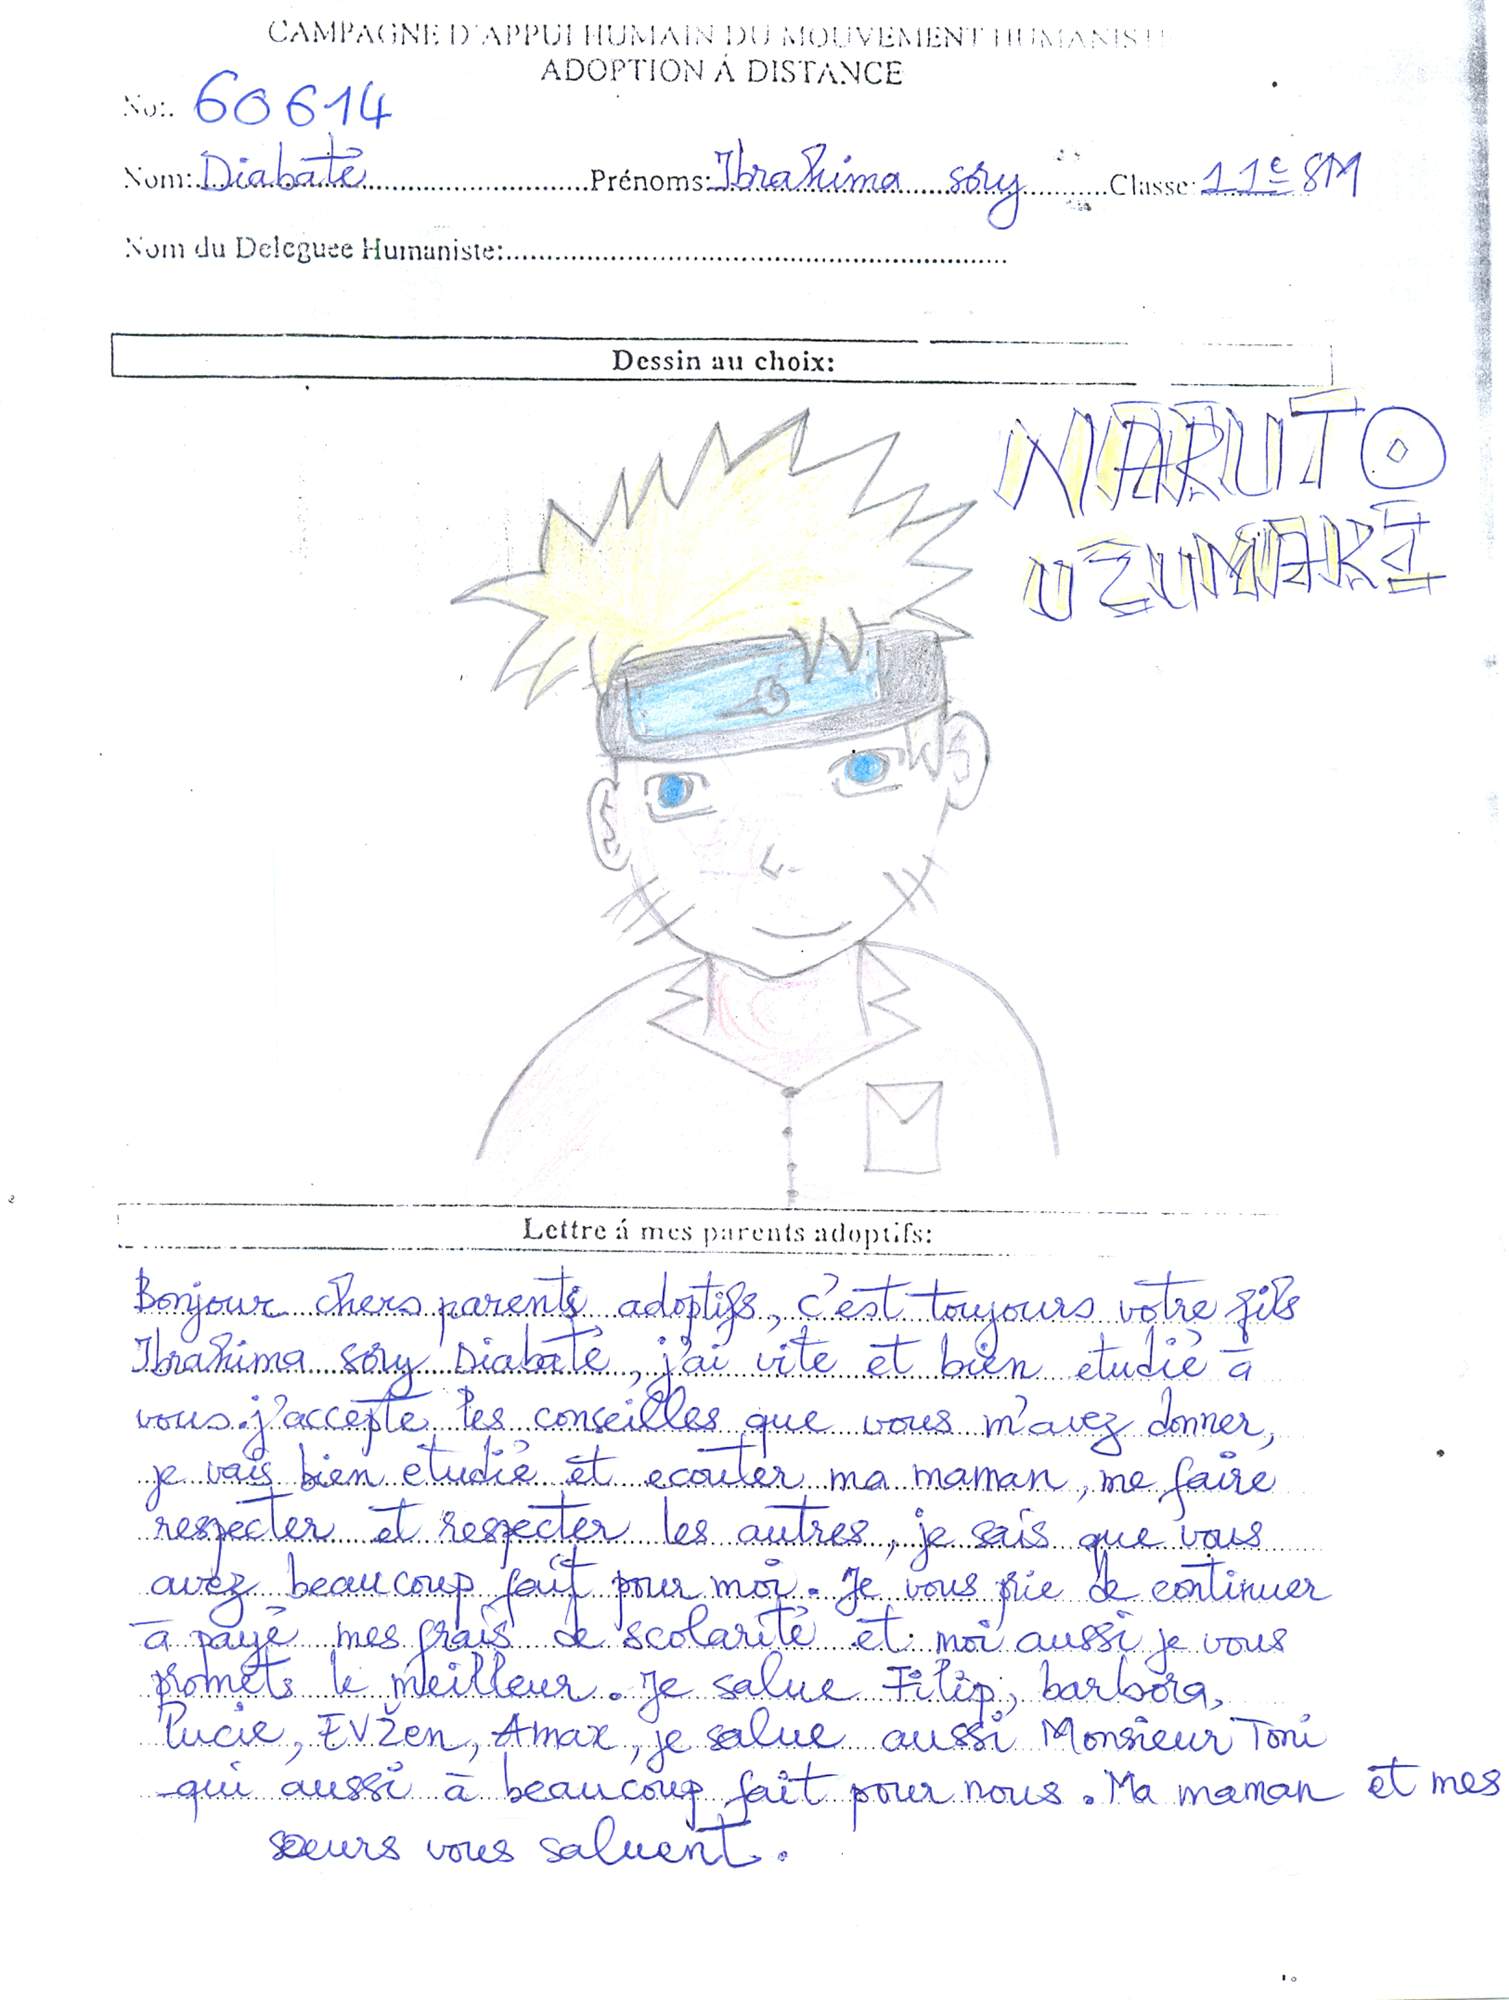 CAMPAGNE D'APPUI HUMAIN DU MOUVEMENT HUMANISTE
ADOPTION Á DISTANCE
No:. 60614
Nom: Diabaté Prénoms: Ibrahima sory Classe: 11e SM
Nom du Deleguee Humaniste:
Dessin au choix:
NARUTO
UZUMAKI
Lettre á mes parents adoptifs:
Bonjour chers parents adoptifs, c'est toujours votre fils
Ibrahima sory Diabaté, j'ai vite et bien etudié à
vous. j'accepte les conseilles que vous m'avez donner,
je vais bien etudié et ecouter ma maman, me faire
respecter et respecter les autres, je sais que vous
avez beaucoup fait pour moi. Je vous prie de continuer
à payé mes frais de scolarité et moi aussi je vous
promets le meilleur. Je salue Filip, barbora,
Lucie, EVžen, Amax, je salue aussi Monsieur Toni
qui aussi à beaucoup fait pour nous. Ma maman et mes
soeurs vous saluent.